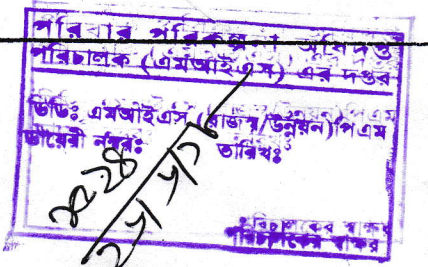 পরিবার পরিকল্পনা অধিদপ্ত
পরিচালক (এমআইএস) এর দপ্তর
ডিডিঃ এমআইএস (রাজস্ব/উন্নয়ন)পিএম
ডায়েরী নম্বরঃ তারিখঃ
পরিচালকের স্বাক্ষর